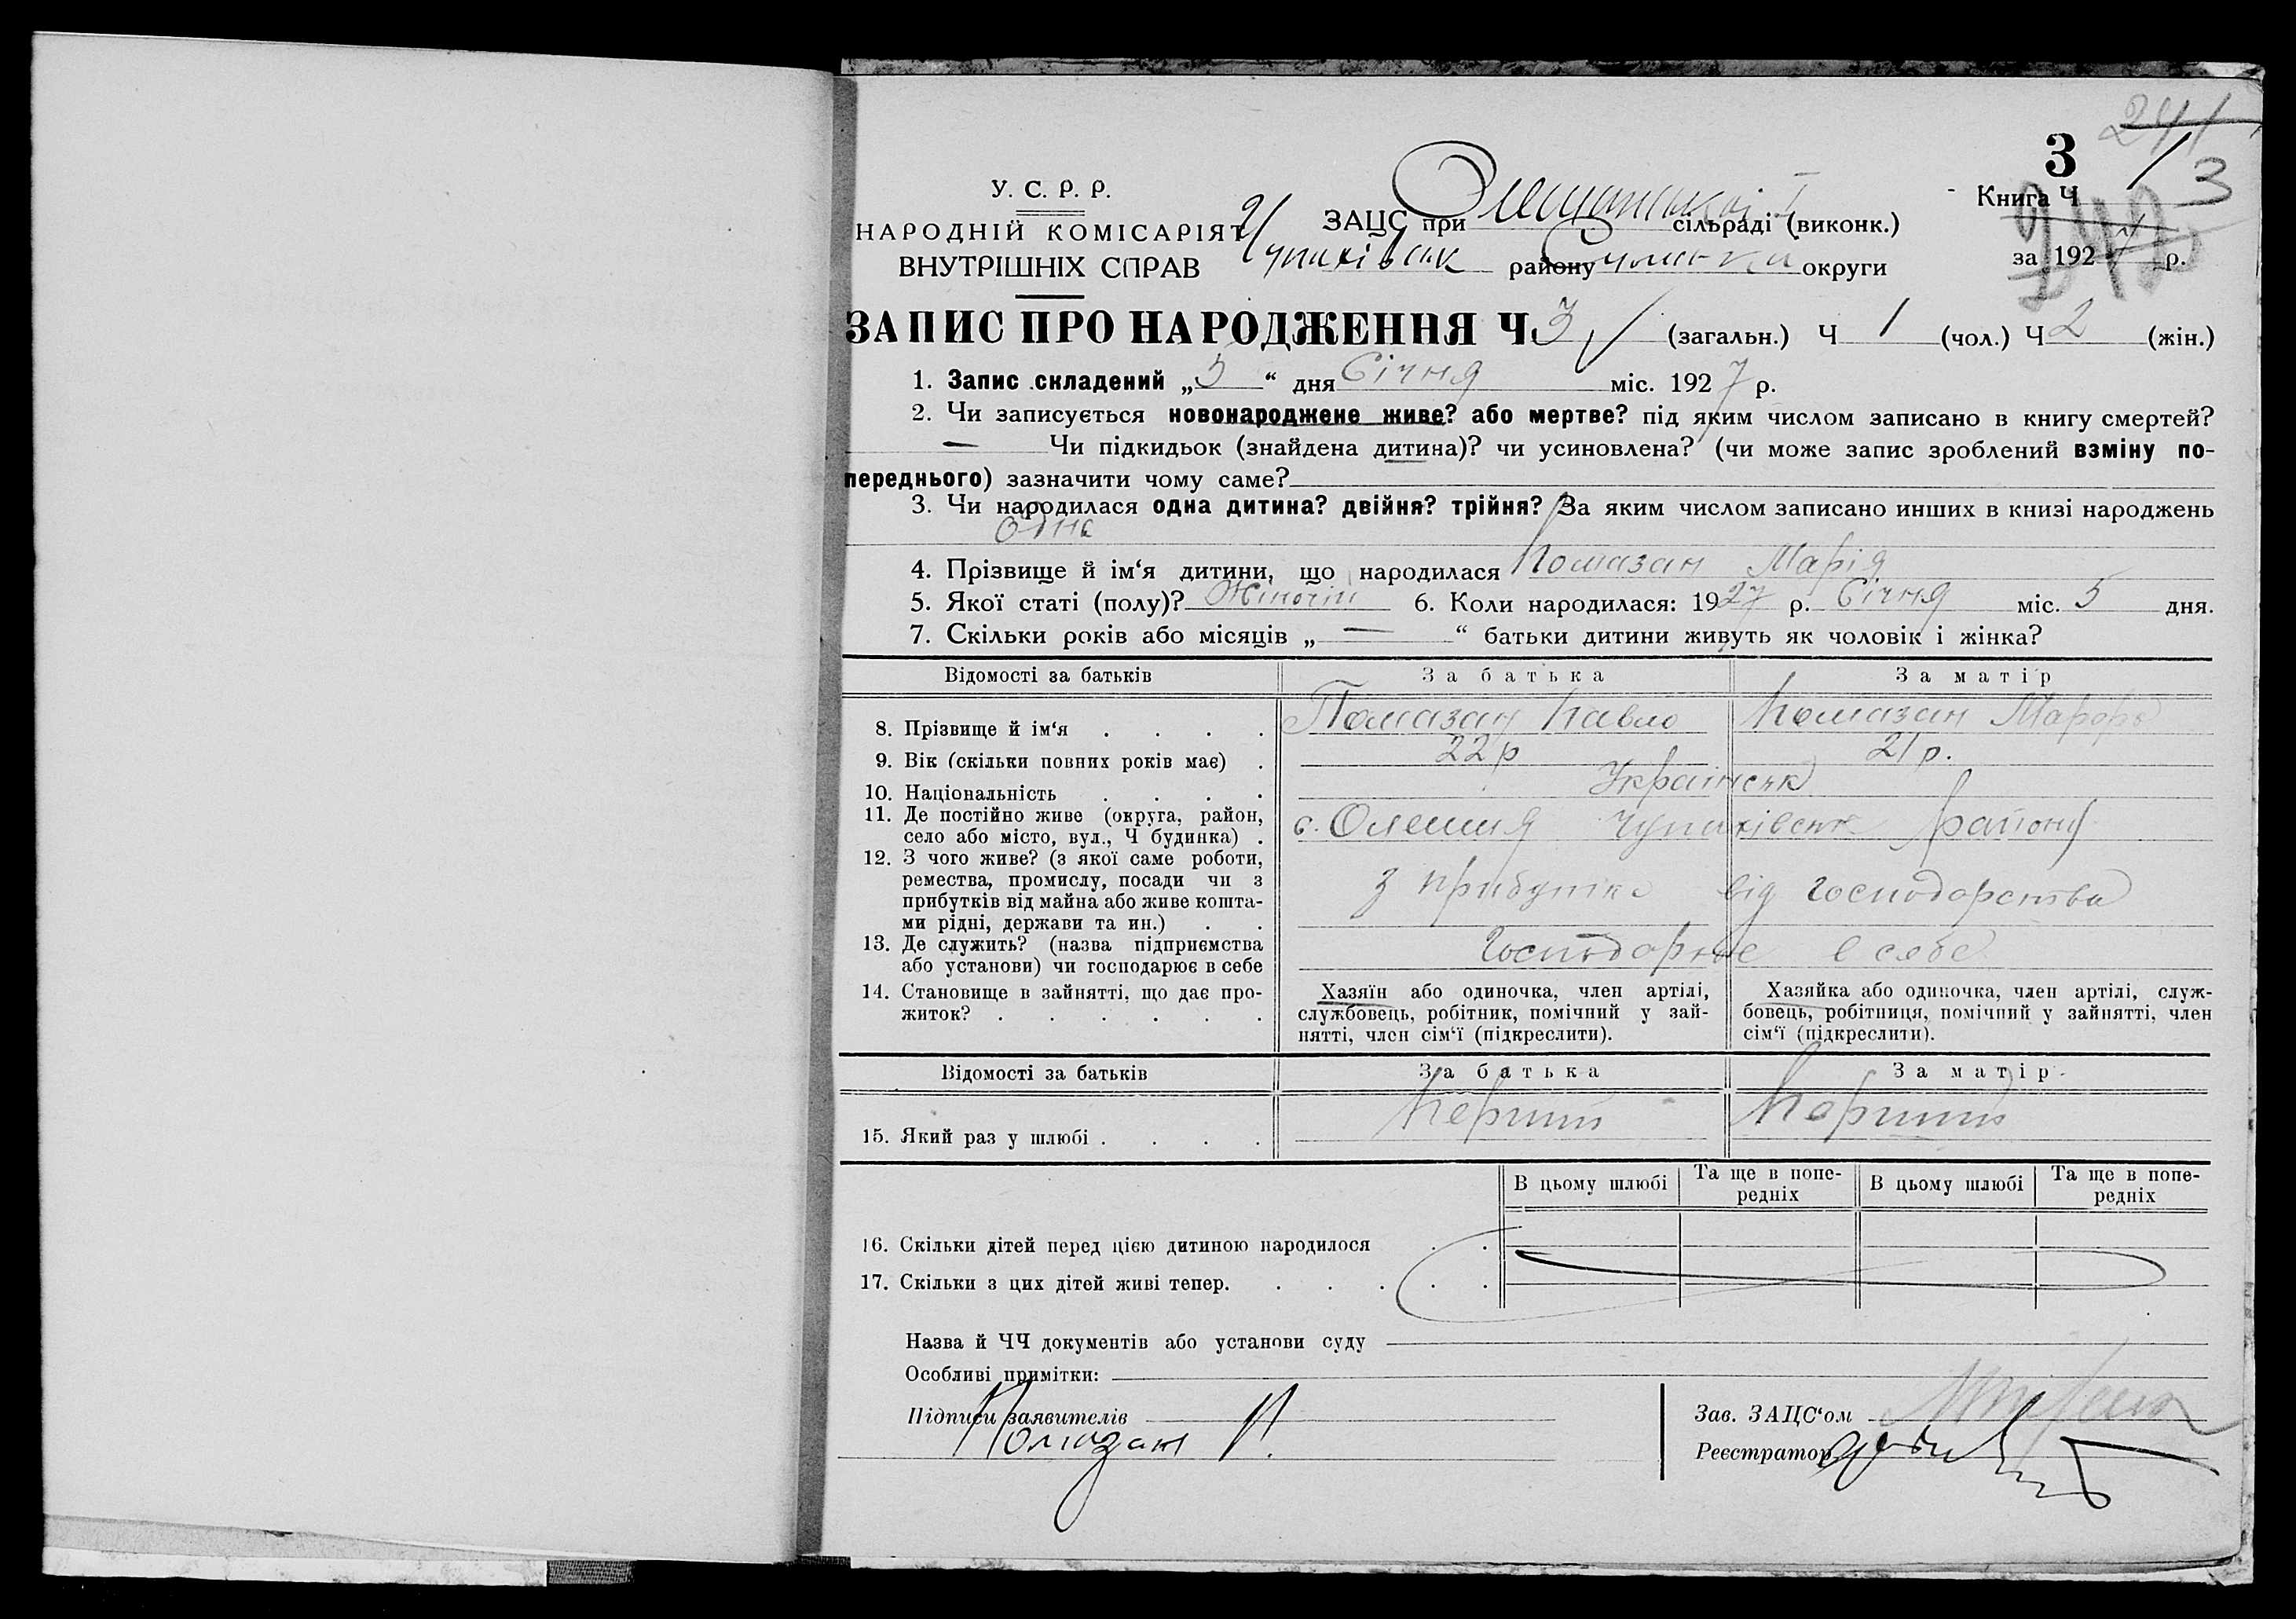 241
3
1
3
У. С. Р. Р.
Книга Ч
242
НАРОДНІЙ КОМІСАРІЯТ
ЗАЦС при сільраді (виконк.)
ВНУТРІШНІХ СПРАВ
Чупахівськ району Сумської округи
за 1927 р.
ЗАПИС ПРО НАРОДЖЕННЯ Ч. 3 (загальн.) Ч 1 (чол.) Ч 2 (жін.)
1. Запис складений „5“ дня Січня міс. 1927 р.
2. Чи записується новонароджене живе? або мертве? під яким числом записано в книгу смертей?
— Чи підкидьок (знайдена дитина)? чи усиновлена? (чи може запис зроблений взміну по-
переднього) зазначити чому саме?
3. Чи народилася одна дитина? двійня? трійня? За яким числом записано инших в книзі народжень
одна
4. Прізвище й ім‘я дитини, що народилася Помазан Марія
5. Якої статі (полу)? Жіночій 6. Коли народилася: 1927 р. Січня міс. 5 дня.
7. Скільки років або місяців „ — “ батьки дитини живуть як чоловік і жінка?
Відомості за батьків За батька За матір
8. Прізвище й ім‘я . . . . Помазан Павло Помазан
9. Вік (скільки повних років має) . 22 р 21 р.
10. Національність . . . . Українськ
11. Де постійно живе (округа, район,
село або місто, вул., Ч будинка) . с. Олешня Чупахівськ району
12. З чого живе? (з якої саме роботи,
ремества, промислу, посади чи з
прибутків від майна або живе кошта-
ми рідні, держави та ин.) . . з прибутка від господарства
13. Де служить? (назва підприємства
або установи) чи господарює в себе Господорює в себе
14. Становище в зайнятті, що дає про-
житок? . . . . . .
Хазяїн або одиночка, член артілі,
службовець, робітник, помічний у зай-
нятті, член сім‘ї (підкреслити).
Хазяйка або одиночка, член артілі, служ-
бовець, робітниця, помічний у зайнятті, член
сім‘ї (підкреслити).
Відомості за батьків За батька За матір
15. Який раз у шлюбі . . . . Перший Перший
В цьому шлюбі Та ще в попе-
редніх В цьому шлюбі Та ще в попе-
редніх
16. Скільки дітей перед цією дитиною народилося . .
17. Скільки з цих дітей живі тепер. . . . . .
Назва й ЧЧ документів або установи суду
Особливі примітки:
Підписи заявителів
Помазан П.
Зав. ЗАЦС‘ом
Реєстратор